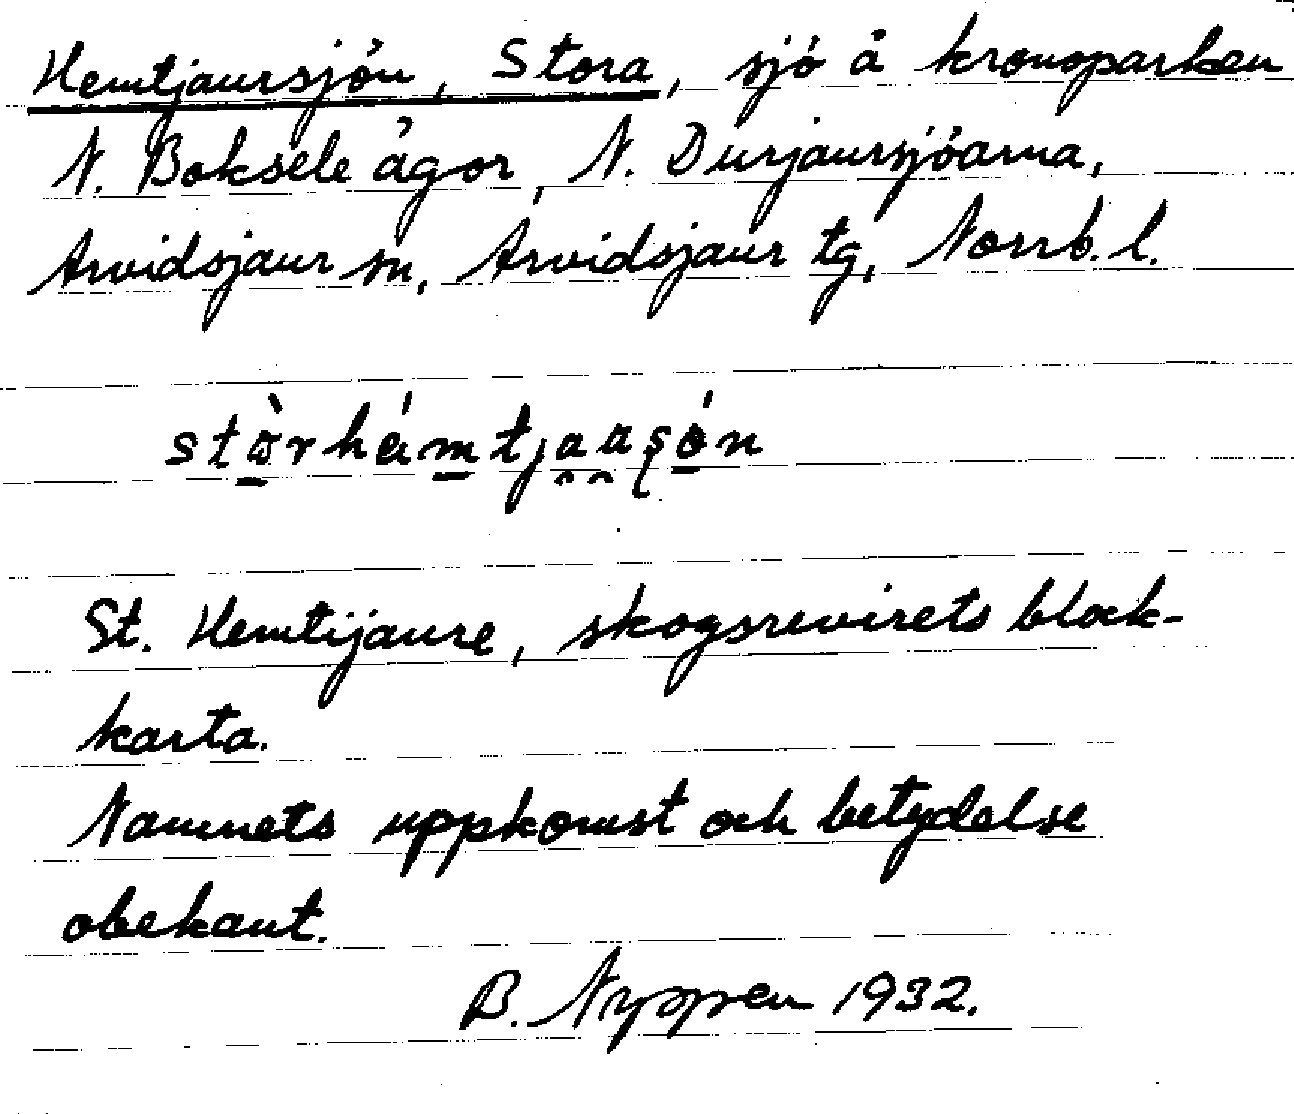 Hemtjaursjön, Stora, sjö å kronoparken
N. Boksele ägor, N. Durjaursjöarna,
Arvidsjaur sn, Arvidsjaur tg, Norrb. l.
stòrhémtjaaʂón
St. Hemtijaure, skogsrevirets block-
karta.
Namnets uppkomst och betydelse
obekant.
B. Nyppen 1932.